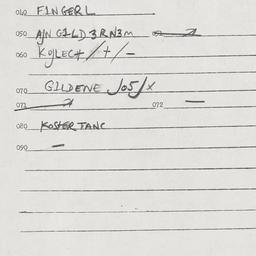 040 FINGERL
050 AJN GILD3RN3M
060 KOJLECH /+/-
070 GILDENE JOSJX
071 072 —
080 KOSTER TANC
090 —